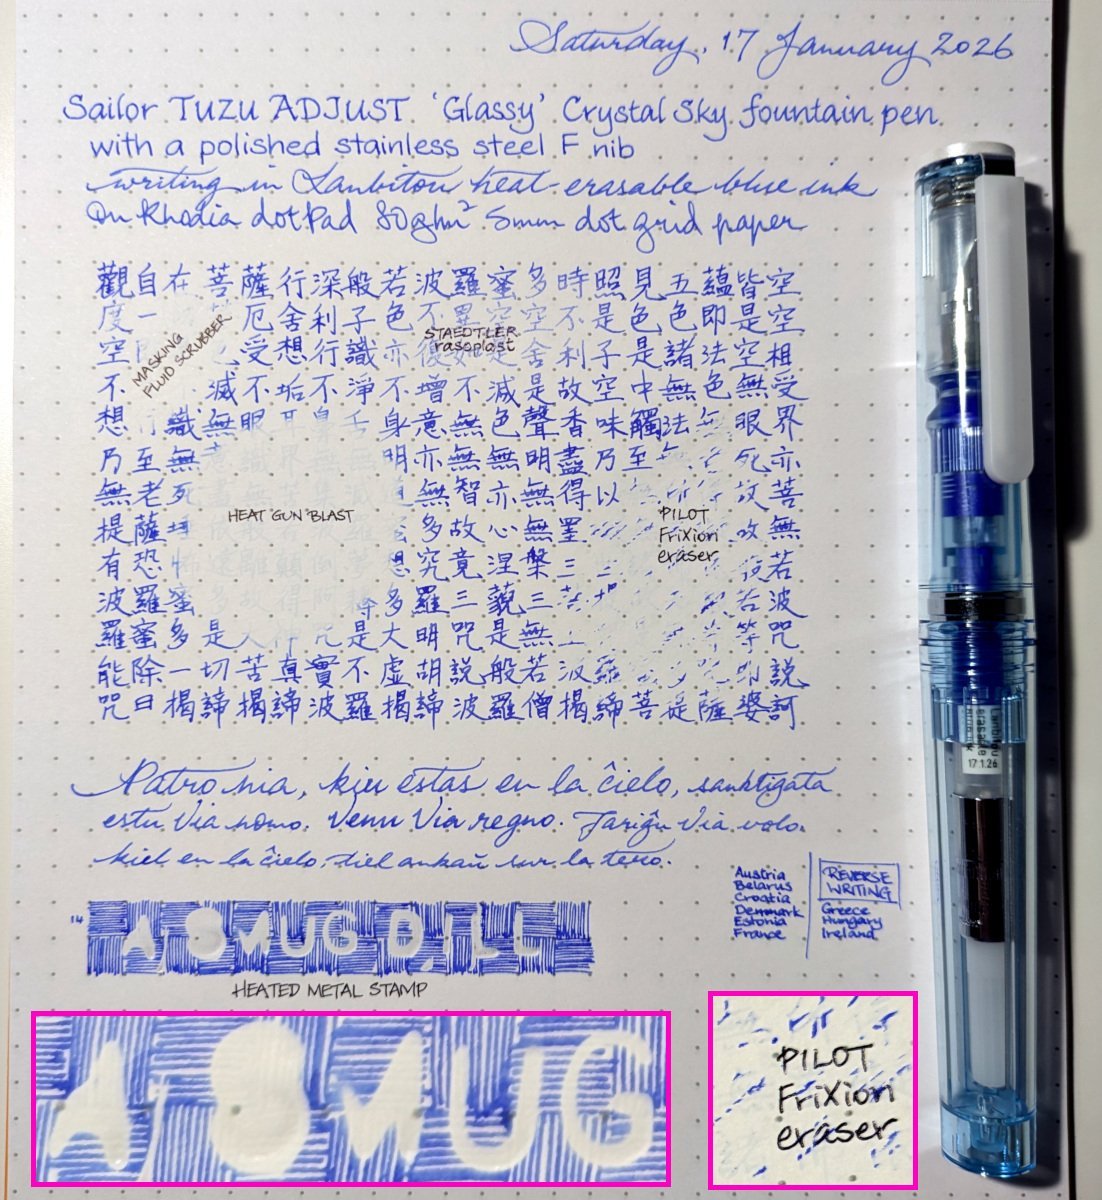 Saturday, 17 January 2026
Sailor TUZU ADJUST 'Glassy' Crystal Sky fountain pen
with a polished stainless steel F nib
writing in Lanbitou heat-erasable blue ink
On Rhodia dotPad 80g/m² 5mm dot grid paper
觀自在菩薩行深般若波羅蜜多時照見五蘊皆空
度一 厄舍利子色不異空空不是色色即是空
空 受想行識亦復如是舍利子是諸法空相
不 滅不垢不淨不增不減是故空中無色無受
想行識無眼耳鼻舌身意無色聲香味觸法無眼界
乃至無意識界無無明亦無無明盡乃至無老死亦
無老死盡無苦集滅道無智亦無得以無所得故菩
提薩埵依般若羅蜜多故心無罣 故無
有恐怖遠離顛倒夢想究竟涅槃三 般若
波羅蜜多故得阿耨多羅三藐三菩提 若波
羅蜜多是大神咒是大明咒是無上 等咒
能除一切苦真實不虛胡說般若波羅蜜多咒即說
咒曰揭諦揭諦波羅揭諦波羅僧揭締菩提薩婆訶
MASKING
FLUID SCRUBBER
STAEDTLER
rasoplast
HEAT GUN BLAST
PILOT
FriXion
eraser
Patro nia, kiu estas en la ĉielo, sanktigata
estu Via nomo. Venu Via regno. Fariĝu Via volo.
kiel en la ĉielo, tiel ankaŭ sur la tero.
Austria
Belarus
Croatia
Denmark
Estonia
France
REVERSE
WRITING
Greece
Hungary
Ireland
14
A SMUG DILL
HEATED METAL STAMP
A SMUG
PILOT
FriXion
eraser
Lanbitou
erasable
17.1.26